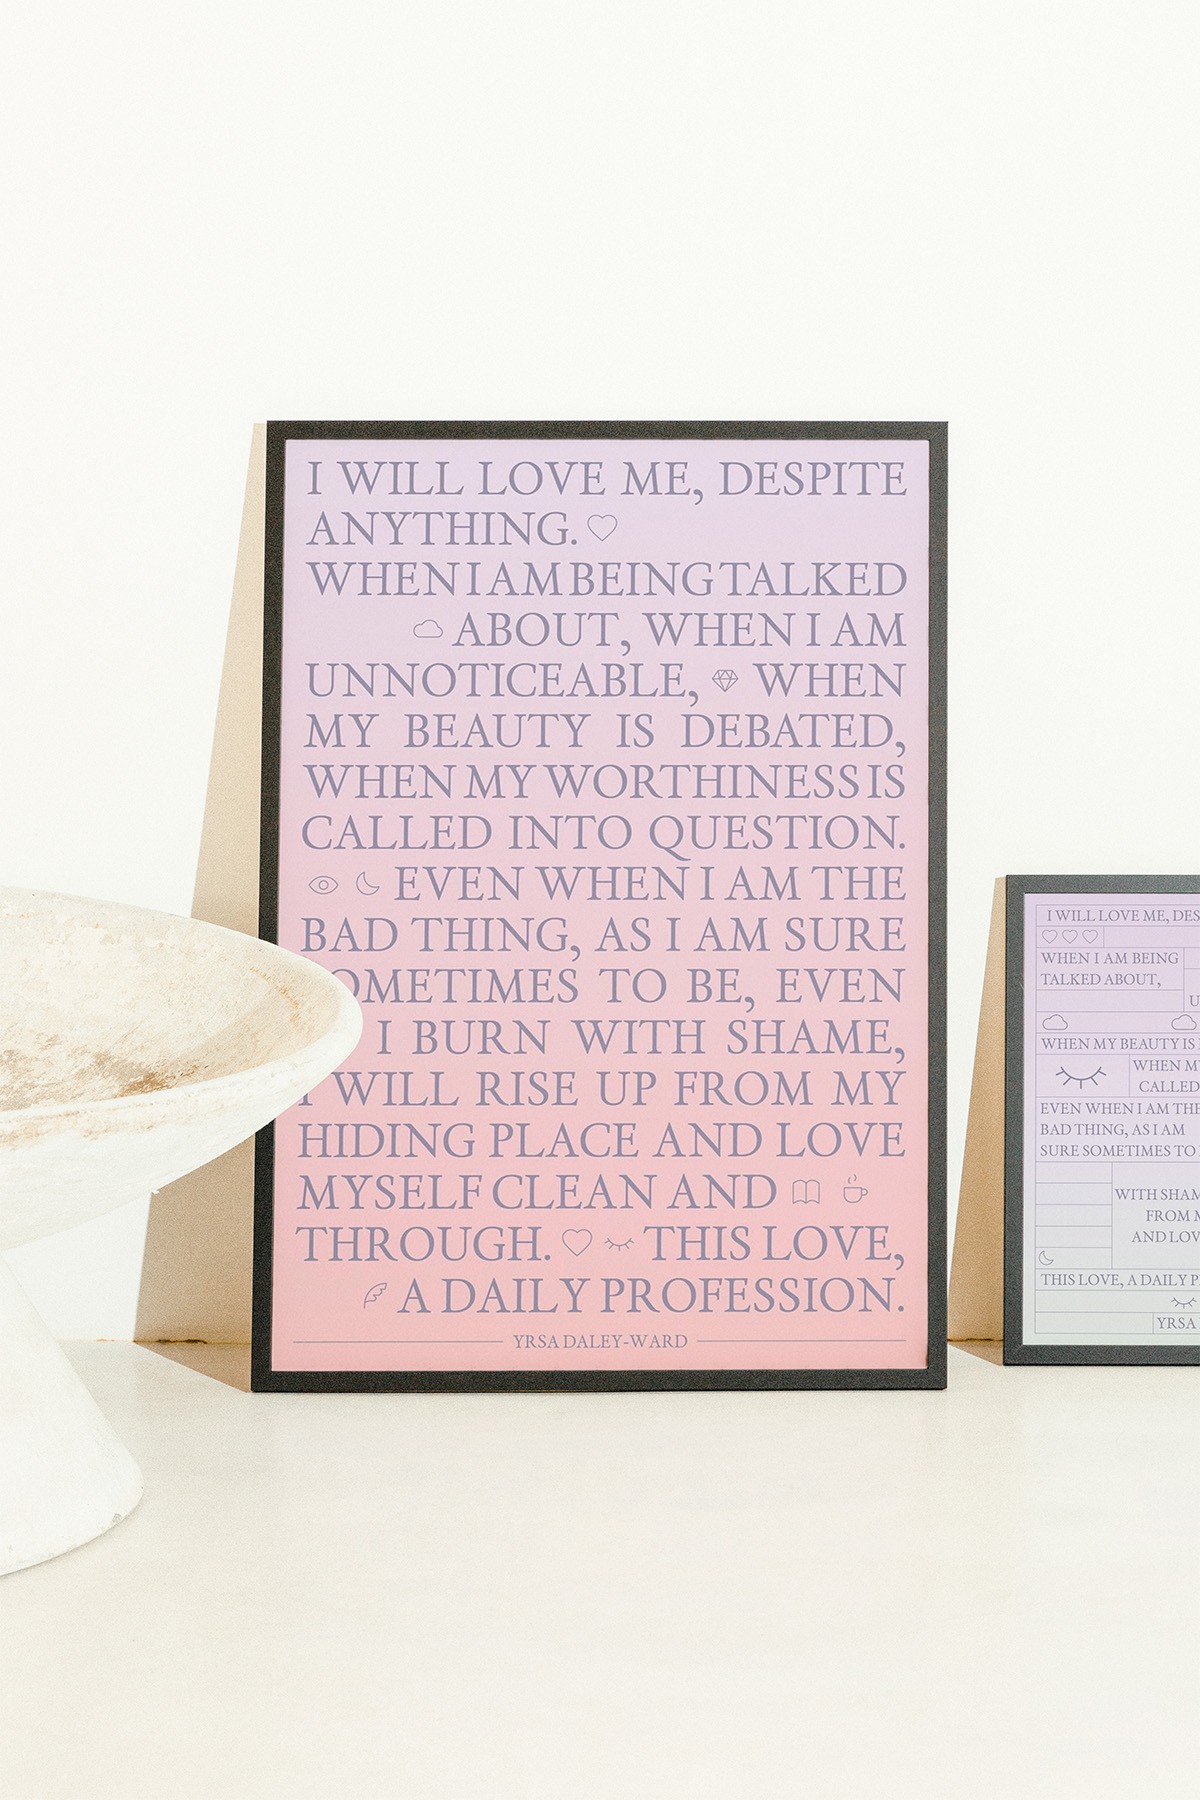 I WILL LOVE ME, DESPITE
ANYTHING.
WHEN I AM BEING TALKED
ABOUT, WHEN I AM
UNNOTICEABLE, WHEN
MY BEAUTY IS DEBATED,
WHEN MY WORTHINESS IS
CALLED INTO QUESTION.
EVEN WHEN I AM THE
BAD THING, AS I AM SURE
OMETIMES TO BE, EVEN
I BURN WITH SHAME,
I WILL RISE UP FROM MY
HIDING PLACE AND LOVE
MYSELF CLEAN AND
THROUGH. THIS LOVE,
A DAILY PROFESSION.
YRSA DALEY-WARD
I WILL LOVE ME, DES
WHEN I AM BEING
TALKED ABOUT,
U
WHEN MY BEAUTY IS
WHEN M
CALLED
EVEN WHEN I AM THE
BAD THING, AS I AM
SURE SOMETIMES TO
WITH SHAM
FROM M
AND LOV
THIS LOVE, A DAILY P
YRSA